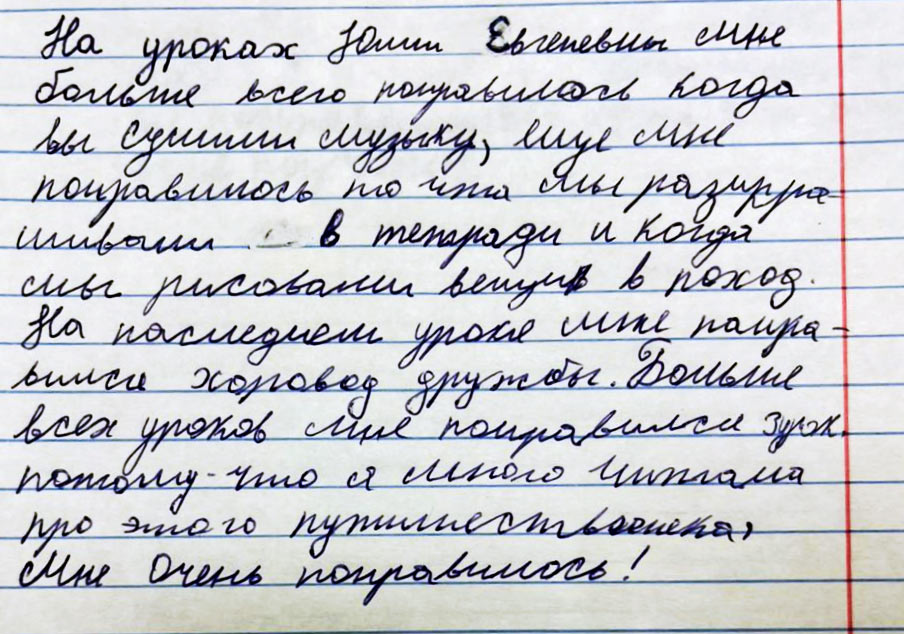 На уроках Юлии Евгеневны мне
больше всего понравилось когда
мы сушили музыку, еще мне
понравилось то что мы разукра-
шивали в тетради и когда
мы рисовали вещи в поход.
На последнем уроке мне понра-
вился хоровод дружбы. Больше
всех уроков мне понравился 3урок.
потому-что я много читала
про этого путишественека,
Мне очень понравилось!